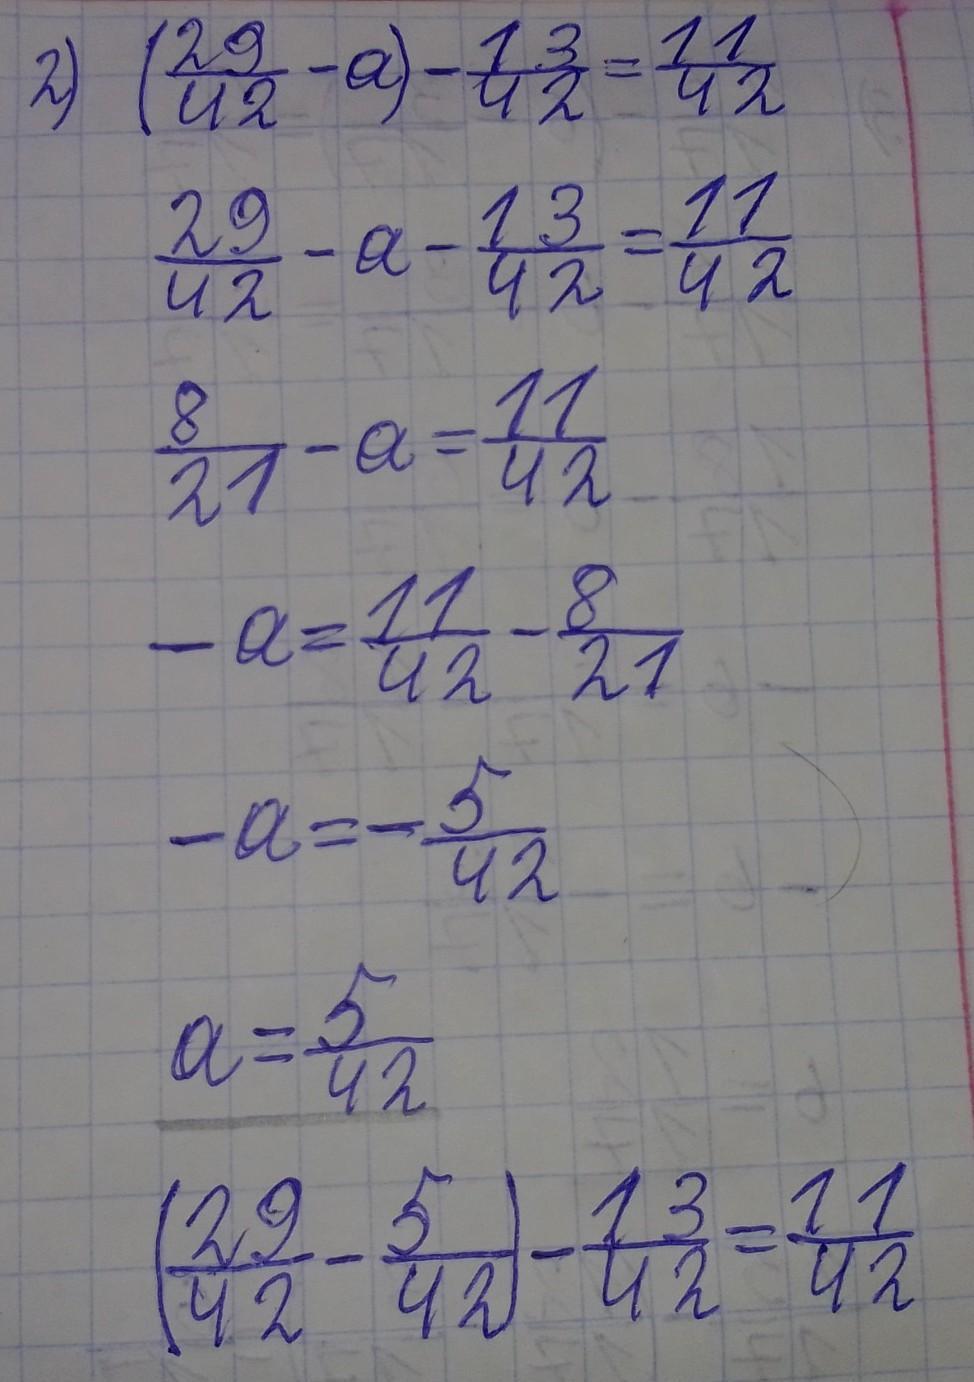 2) (29/42 - a) - 13/42 = 11/42
29/42 - a - 13/42 = 11/42
8/21 - a = 11/42
- a = 11/42 - 8/21
- a = - 5/42
a = 5/42
(29/42 - 5/42) - 13/42 = 11/42